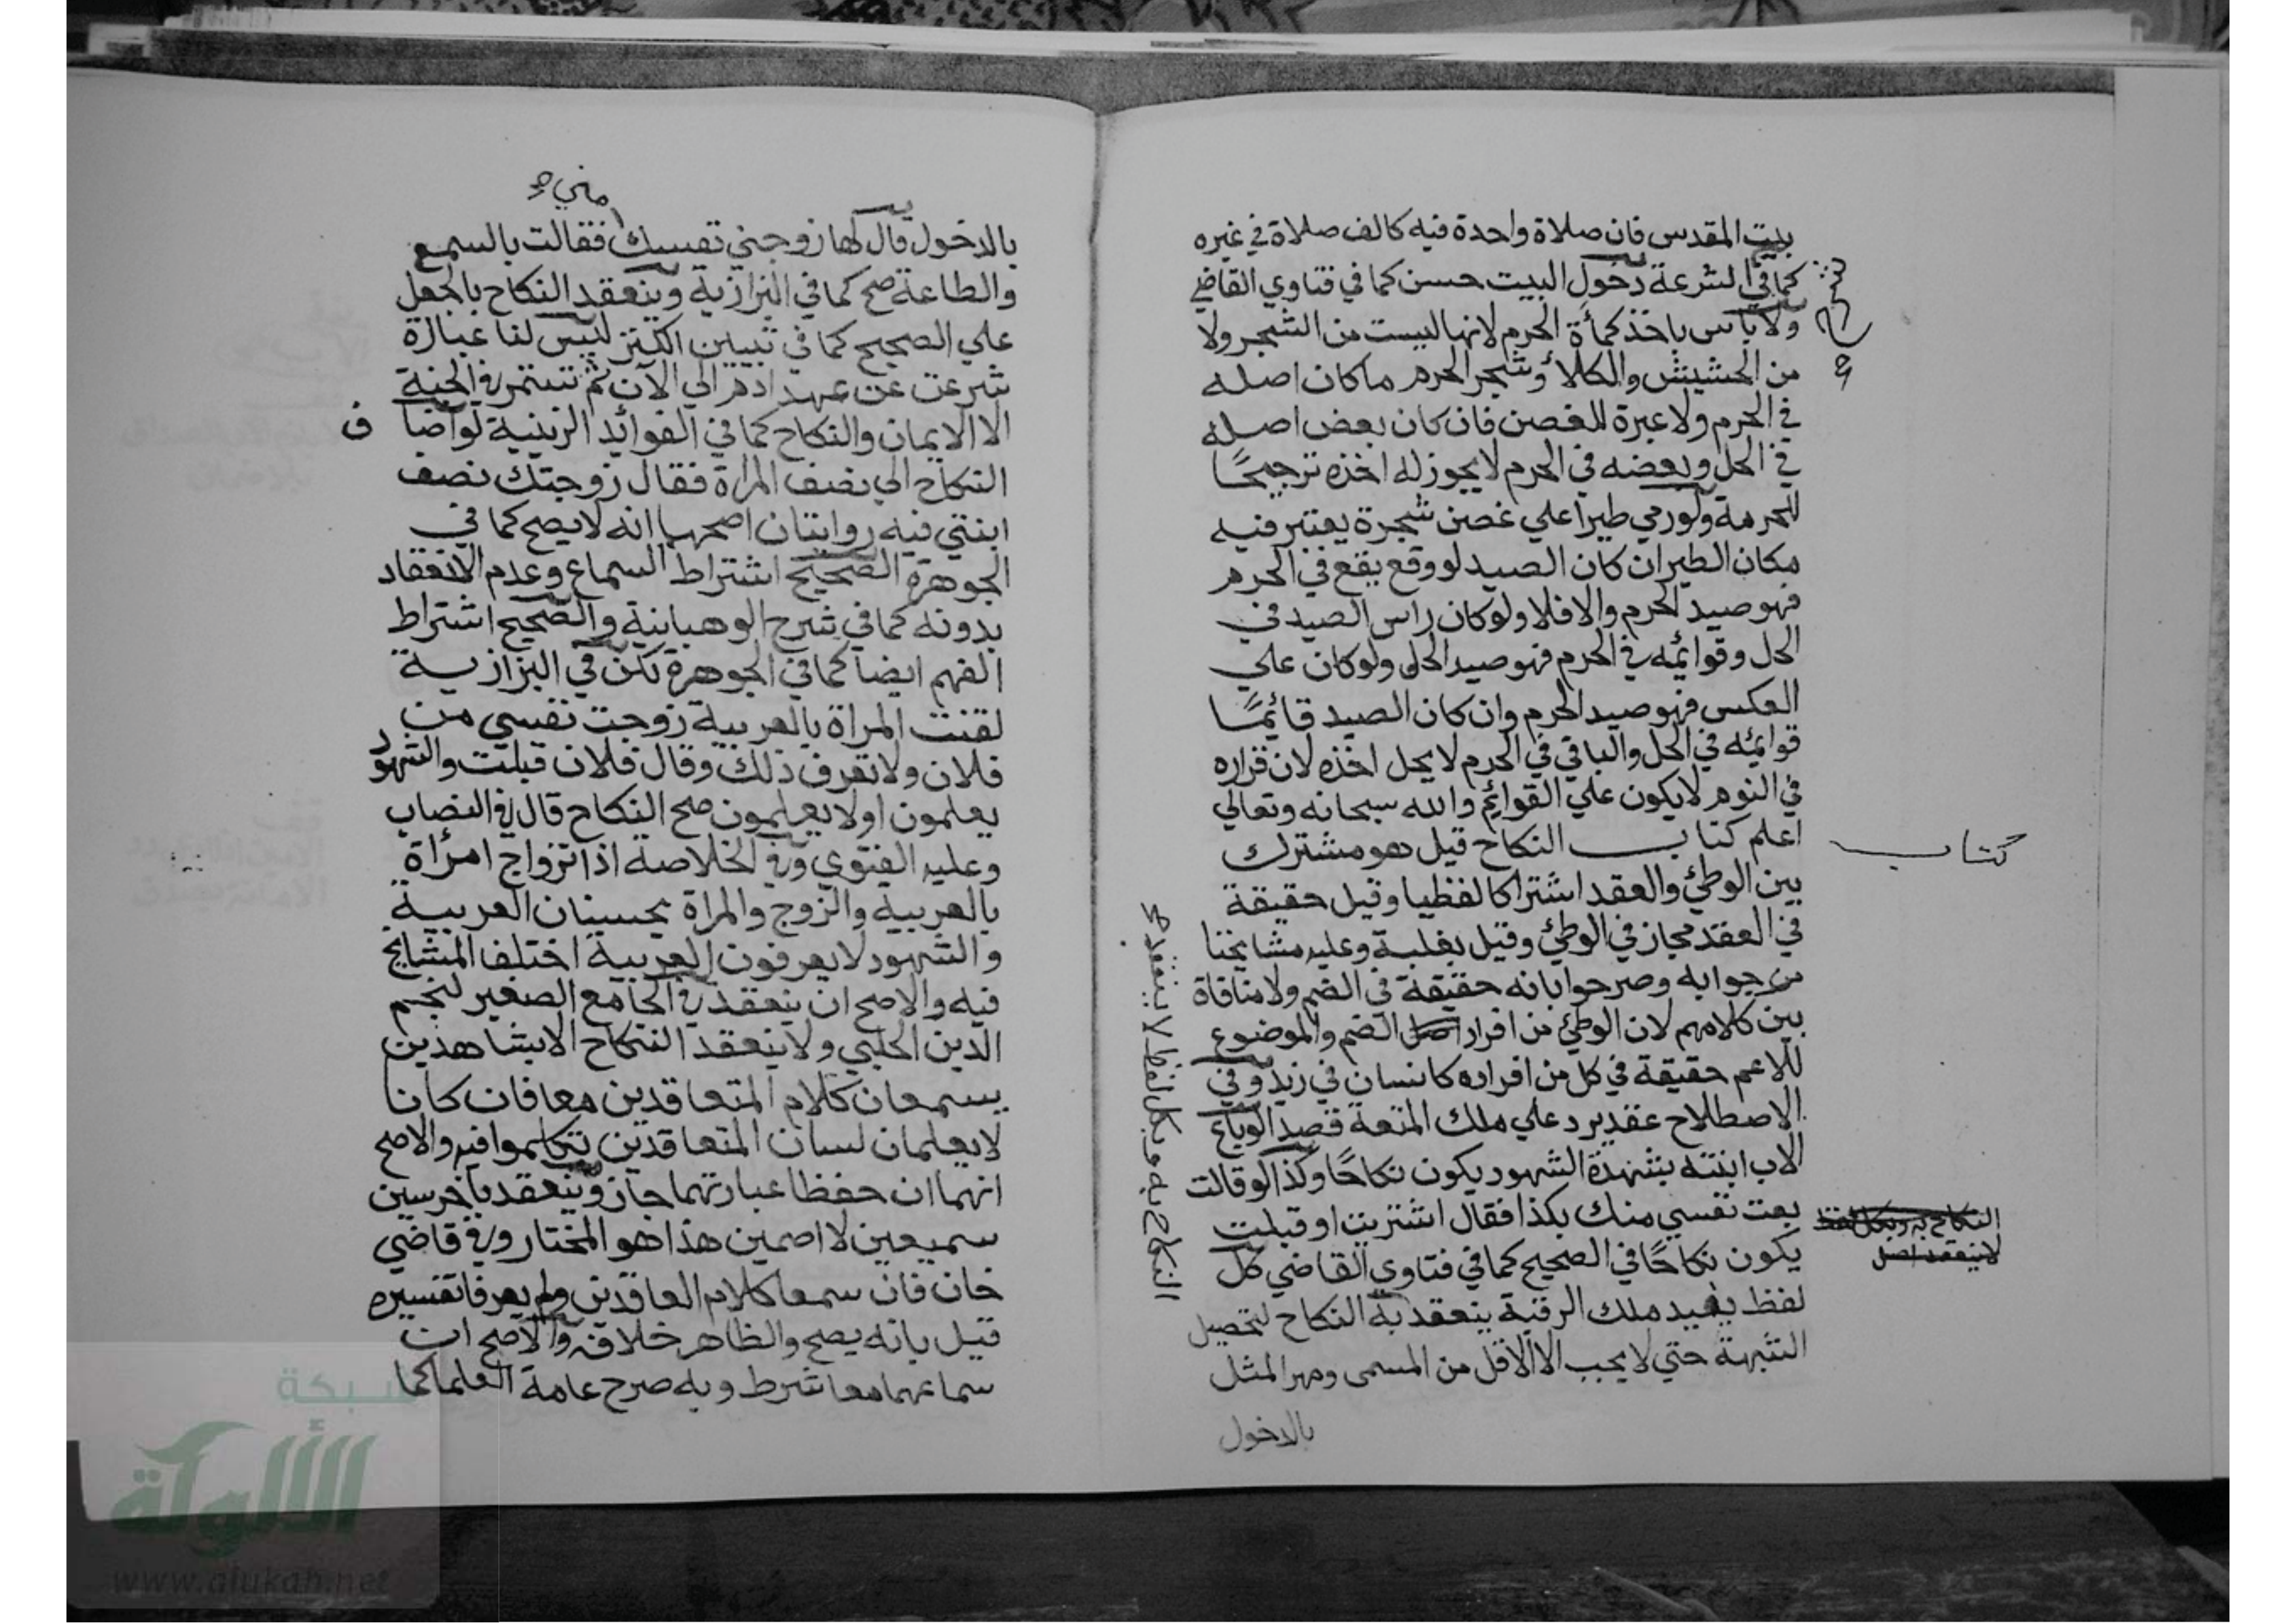 بيت المقدس فان صلاة واحدة فيه كالف صلاة في غيره
كما في الشرعة دخول البيت حسن كما في فتاوي القاضي
ولا باس باخذ كمأة الحرم لانها ليست من الشجر ولا
من الحشيش والكلأ وشجر الحرم ما كان اصله
في الحرم ولا عبرة للغصن فان كان بعض اصله
في الحل وبعضه في الحرم لا يجوز له اخذه ترجيحًا
للحرمة ولو رمي طيرا علي غصن شجرة يعتبر فيه
مكان الطير ان كان الصيد لو وقع يقع في الحرم
فهو صيد الحرم والا فلا ولو كان راس الصيد في
الحل وقوائمه في الحرم فهو صيد الحل ولو كان علي
العكس فهو صيد الحرم وان كان الصيد قائمًا
قوائمه في الحل والباقي في الحرم لا يحل اخذه لان قراره
في النوم لا يكون علي القوائم والله سبحانه وتعالي
اعلم كتاب النكاح قيل هو مشترك
كتاب
بين الوطئ والعقد اشتراكا لفظيا وقيل حقيقة
في العقد مجاز في الوطئ وقيل بقلبه وعليه مشايخنا
من جوابه وصرحوا بانه حقيقة في الضم ولا منافاة
بين كلامهم لان الوطئ من افراد الضم والموضوع
للاعم حقيقة في كل من افراده كانسان في زيد وفي
الاصطلاح عقد يرد علي ملك المتعة قصدا لو باع
الاب ابنته بشهدة الشهود يكون نكاحًا وكذا لو قالت
بعت نفسي منك بكذا فقال اشتريت او قبلت
يكون نكاحًا في الصحيح كما في فتاوي القاضي كل
لفظ يفيد ملك الرقبة ينعقد به النكاح لتحصيل
الشبهة حتي لا يجب الا الاقل من المسمي ومهر المثل
بالدخول
النكاح به وبكل لفظ لا ينعقد صح
النكاح به وبكل لفظ
لا ينعقد اصل
مني صح
بالدخول قال لها زوجيني نفسك فقالت بالسمع
والطاعة صح كما في البزازية وينعقد النكاح بالجعل
علي الصحيح كما في تبيين الكنز ليس لنا عبارة
شرعت عن عهد ادم الي الآن ثم تستمر في الجنة
الا الايمان والنكاح كما في الفوائد الزينية لو اضا
ف
النكاح الي نصف المراة فقال زوجتك نصف
ابنتي فيه روايتان اصحهما انه لا يصح كما في
الجوهرة الصحيح اشتراط السماع وعدم الانعقاد
بدونه كما في شرح الوهبانية والصحيح اشتراط
الفهم ايضا كما في الجوهرة لكن في البزازية
لقنت المراة بالعربية زوجت نفسي من
فلان ولا تعرف ذلك وقال فلان قبلت والشهود
يعلمون اولا يعلمون صح النكاح قال في النصاب
وعليه الفتوي وفي الخلاصة اذا تزواج امرأة
بالعربية والزوج والمراة يحسينان العربية
والشهود لا يعرفون العربية اختلف المشايخ
فيه والاصح ان ينعقد في الجامع الصغير لنجم
الدين الحلبي ولا ينعقد النكاح الا بشاهدين
يسمعان كلام المتعاقدين معا فان كانا
لا يعلمان لسان المتعاقدين تكلموا فيه والاصح
انهما ان حفظا عبارتهما جاز وينعقد باخرسين
سميعين لا اصمين هذا هو المختار وفي قاضي
خان فان سمعا كلام العاقدين ولم يعرفا تفسيره
قيل بانه يصح والظاهر خلافه والاصح ان
سماعهما معا شرط وبه صرح عامة العلما كما
شبكة
الألوكة
www.alukah.net